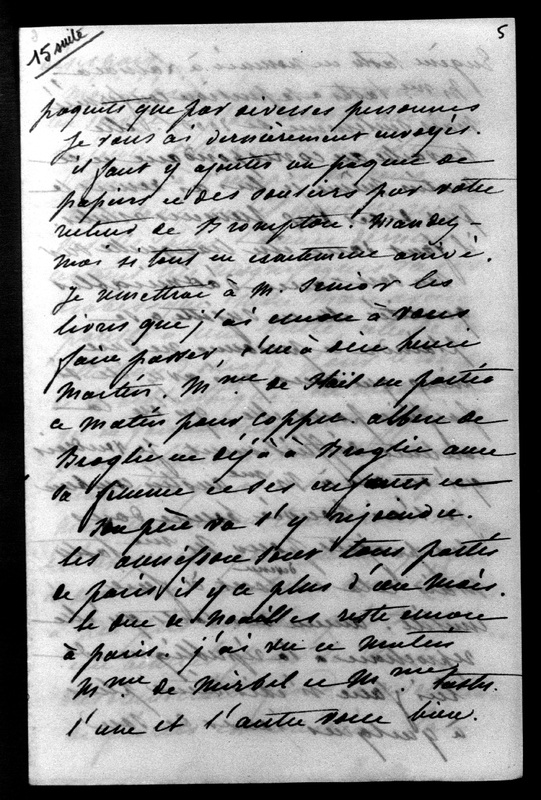 15 suite
5
paquets que par diverses personnes
je vous ai dernièrement envoyés.
il faut y ajouter un paquet de
papiers et des souliers pour votre
retour de Brompton. Mandez-
moi si tout est exactement arrivé.
Je remettrai à M. Senior les
livres que j'ai encore à vous
faire passer, c'est à dire henri
Martin. Mme de Staël est partie
ce matin pour Coppet. albert de
Broglie est déjà à Broglie avec
sa femme et ses enfants et
son père va l'y rejoindre.
les d'haussonville sont tous partis
de paris il y a plus d'un mois.
le duc de Noailles reste encore
à paris. j'ai vu ce matin
Mme de Mirbel et Mme
l'une et l'autre vont bien.